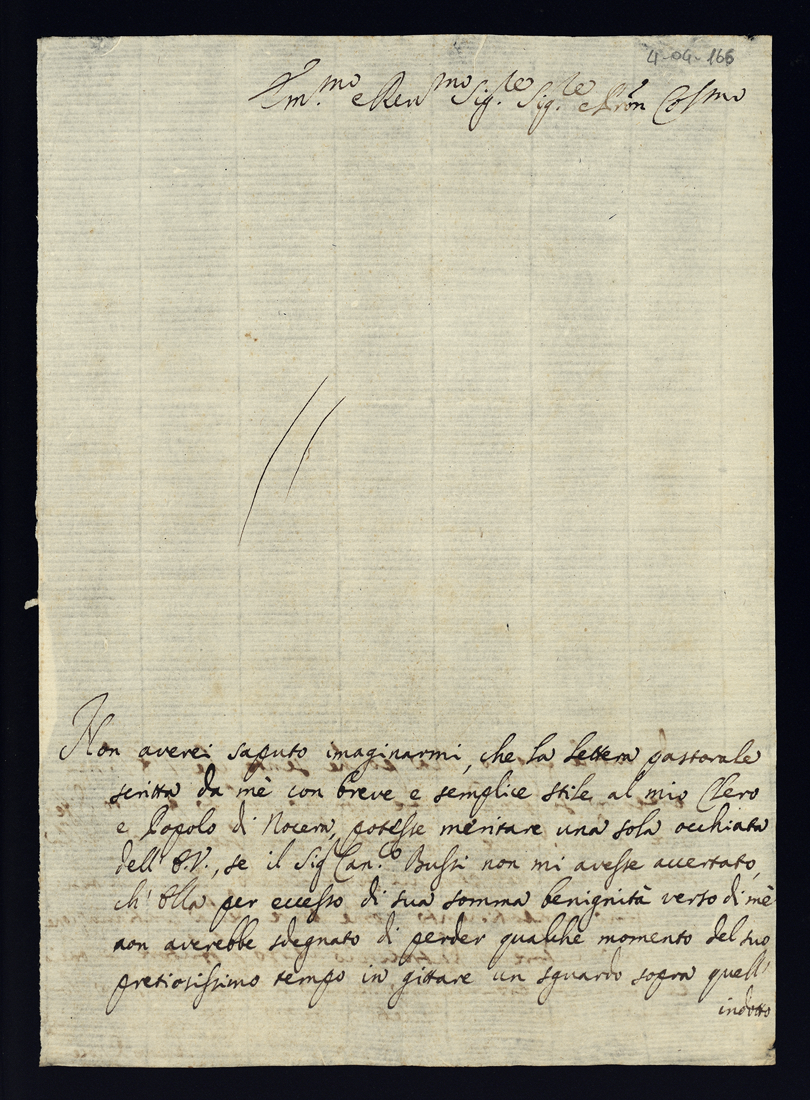 4-04-166
Em.mo e Rev.mo Sig.re Sig.re e Pron Col.mo
Non averei saputo imaginarmi, che la lettera pastorale
scritta da mè con breve e semplice stile al mio Clero
e Popolo di Nocera, potesse meritare una sola occhiata
dell' E.V., se il Sig Can.co Bussi non mi avesse accertato,
ch' Ella per eccesso di sua somma benignità verso di mè
non averebbe sdegnato di perder qualche momento del suo
pretiosissimo tempo in gittare un sguardo sopra quell'
indotto